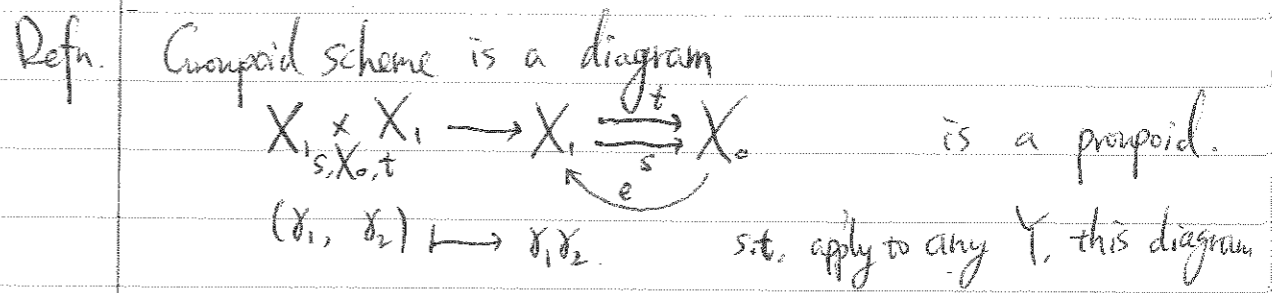 Defn. Groupoid scheme is a diagram
X₁ ×_{s,X₀,t} X₁ ⟶ X₁ ⇉ X₀ t s e is a groupoid.
(γ₁, γ₂) ⟼ γ₁γ₂. s.t. apply to any Y, this diagram